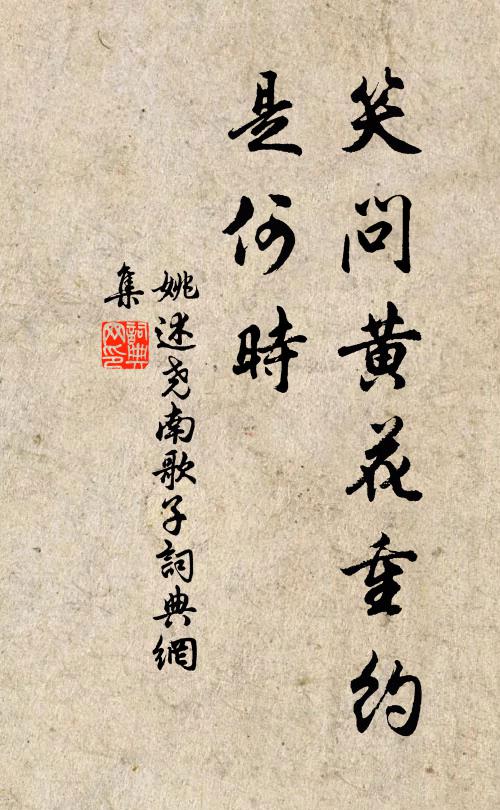 笑問黄花重約
是何時
姚述尧南歌子詞典網
集
詞典网印